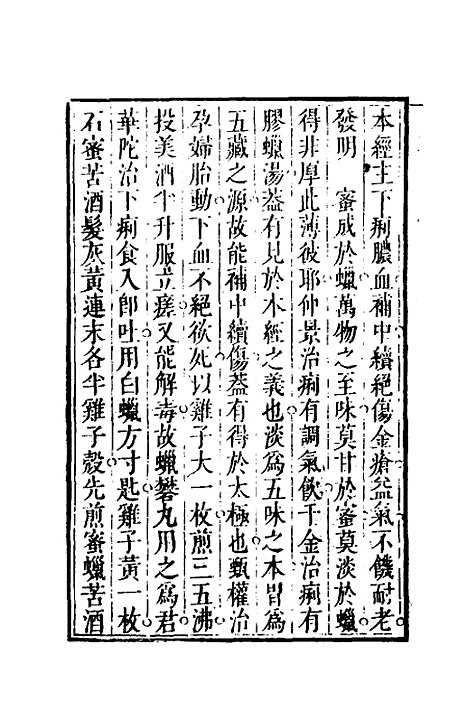 本經主下痢膿血補中續絕傷金瘡益氣不饑耐老
發明　蜜成於蠟萬物之至味莫甘於蜜莫淡於蠟
得非厚此薄彼耶仲景治痢有調氣飲千金治痢有
膠蠟湯葢有見於本經之義也淡為五味之本胃為
五藏之源故能補中續傷葢有得於太極也甄權治
孕婦胎動下血不絕欲死以雞子大一枚煎三五沸
投美酒半升服立瘥又能解毒故蠟礬丸用之為君
華陀治下痢食入卽吐用白蠟方寸匙雞子黃一枚
石蜜苦酒髮灰黃連末各半雞子殼先煎蜜蠟苦酒